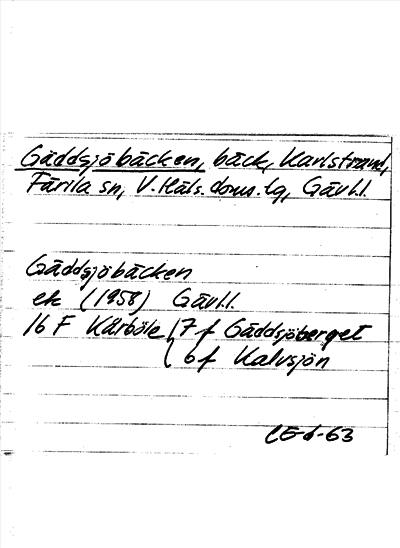 Gäddsjöbäcken, bäck, Karlstrand,
Färila sn, V. Häls. doms. lg, Gävl.l.
Gäddsjöbäcken
ek (1958) Gävl.l.
16 F Kårböle 7 f Gäddsjöberget
6 f Kalvsjön
CE-6-63